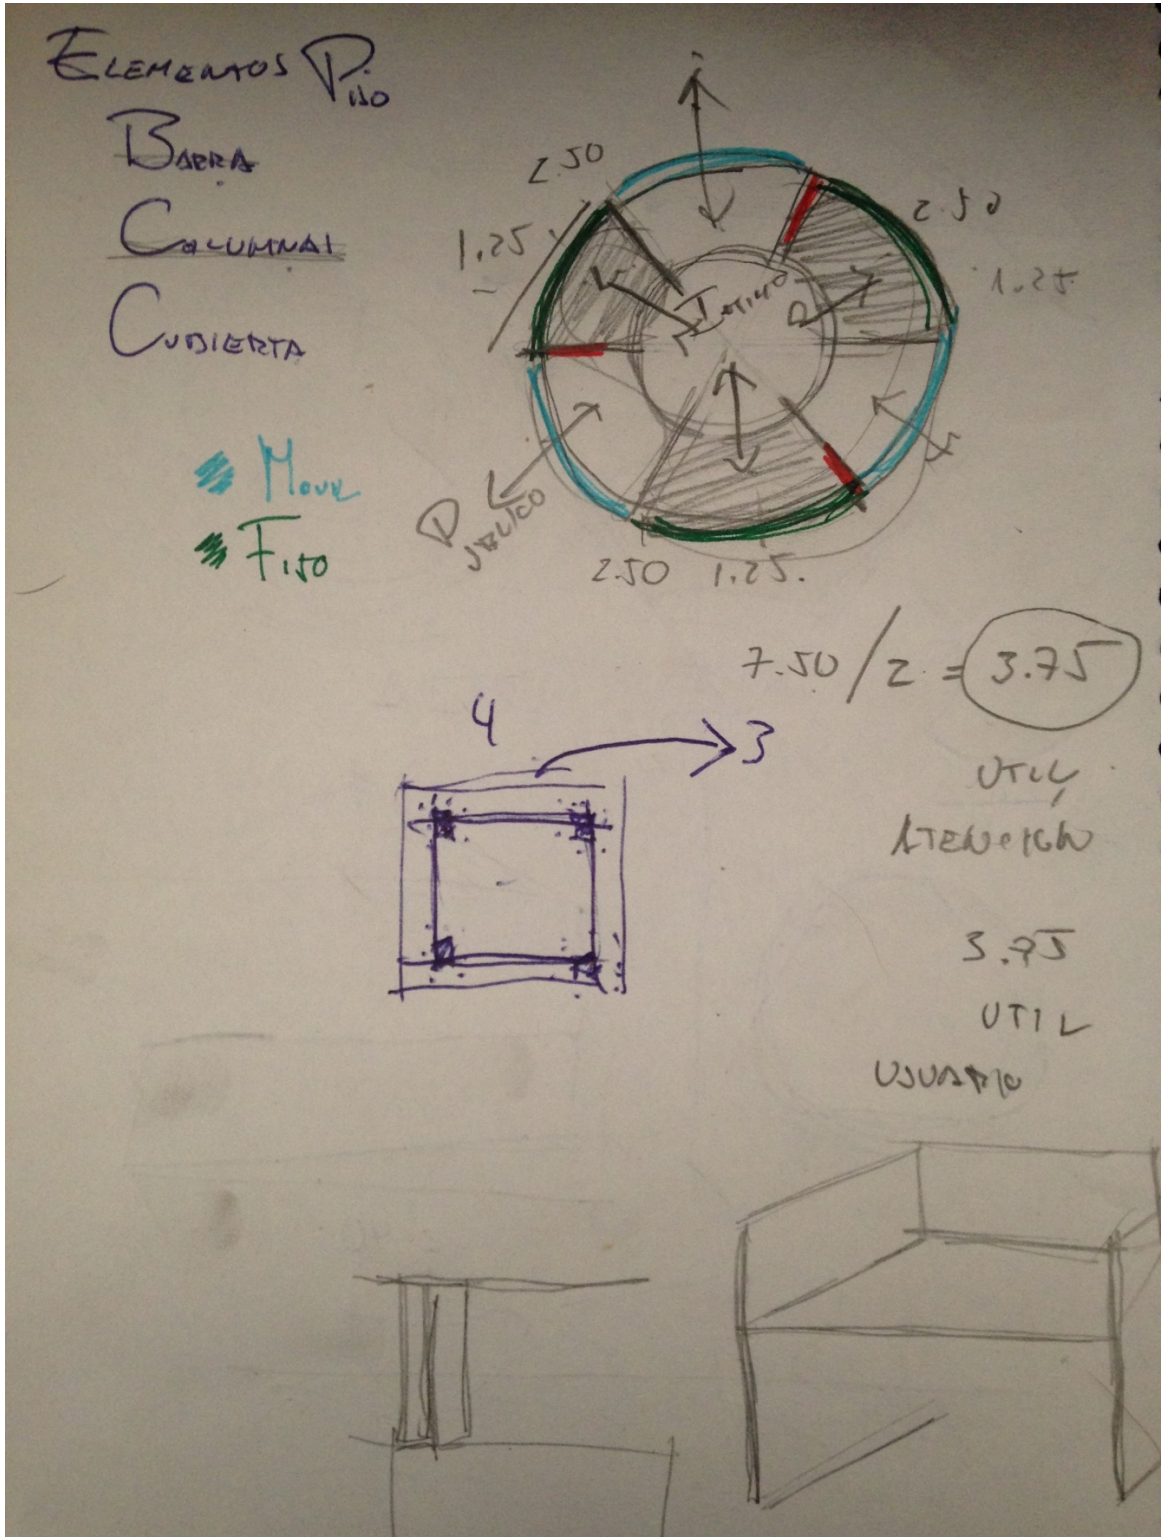 ELEMENTOS PISO
BARRA
COLUMNAS
CUBIERTA
MOVIL
FIJO
2.50
1.25
2.50
1.25
INTIMO
PUBLICO
2.50 1.25.
7.50/2 = 3.75
UTIL
ATENCIÓN
4
3
3.75
UTIL
USUARIO